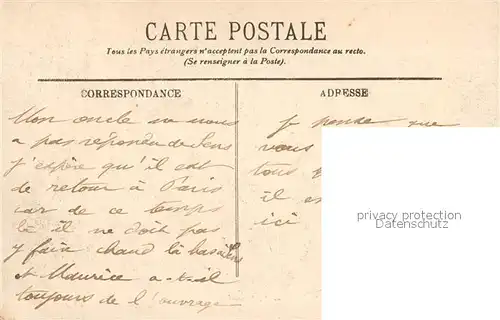 CARTE POSTALE
Tous les Pays étrangers n'acceptent pas la Correspondance au recto.
(Se renseigner à la Poste).
CORRESPONDANCE
Mon oncle ne nous
a pas répondu de Sens
j'espère qu'il est
de retour à Paris
car de ce temps
là il ne doit pas
y fair chaud là bas
et Maurice a-t-il
toujours de l'ouvrage
ADRESSE
Je pense que
vous
tous
il es
ici
privacy protection
Datenschutz